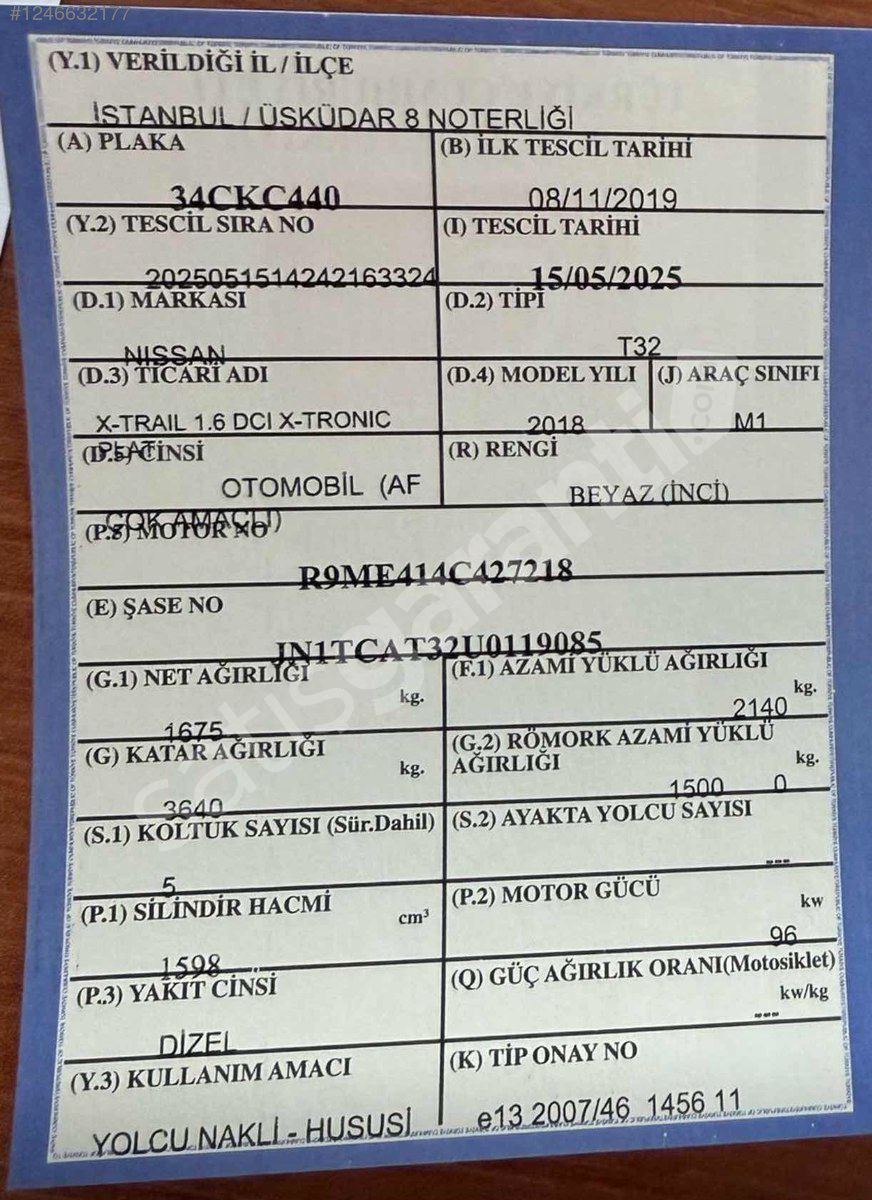 #1246632177
(Y.1) VERİLDİĞİ İL / İLÇE
İSTANBUL / ÜSKÜDAR 8 NOTERLİĞİ
(A) PLAKA
34CKC440
(B) İLK TESCİL TARİHİ
08/11/2019
(Y.2) TESCİL SIRA NO
2025051514242163324
(I) TESCİL TARİHİ
15/05/2025
(D.1) MARKASI
NISSAN
(D.2) TİPİ
T32
(D.3) TİCARİ ADI
X-TRAIL 1.6 DCI X-TRONIC
PLAT
(D.4) MODEL YILI
2018
(J) ARAÇ SINIFI
M1
(D.5) CİNSİ
OTOMOBİL (AF
ÇOK AMAÇLI)
(R) RENGİ
BEYAZ (İNCİ)
(P.5) MOTOR NO
R9ME414C427218
(E) ŞASE NO
JN1TCAT32U0119085
(G.1) NET AĞIRLIĞI
kg.
1675
(F.1) AZAMİ YÜKLÜ AĞIRLIĞI
kg.
2140
(G) KATAR AĞIRLIĞI
kg.
3640
(G.2) RÖMORK AZAMİ YÜKLÜ
AĞIRLIĞI
kg.
1500 0
(S.1) KOLTUK SAYISI (Sür.Dahil)
5
(S.2) AYAKTA YOLCU SAYISI
---
(P.1) SİLİNDİR HACMİ
cm³
1598
(P.2) MOTOR GÜCÜ
kw
96
(P.3) YAKIT CİNSİ
DİZEL
(Q) GÜÇ AĞIRLIK ORANI(Motosiklet)
kw/kg
---
(Y.3) KULLANIM AMACI
YOLCU NAKLİ - HUSUSİ
(K) TİP ONAY NO
e13 2007/46 1456 11
satisgaranti.com